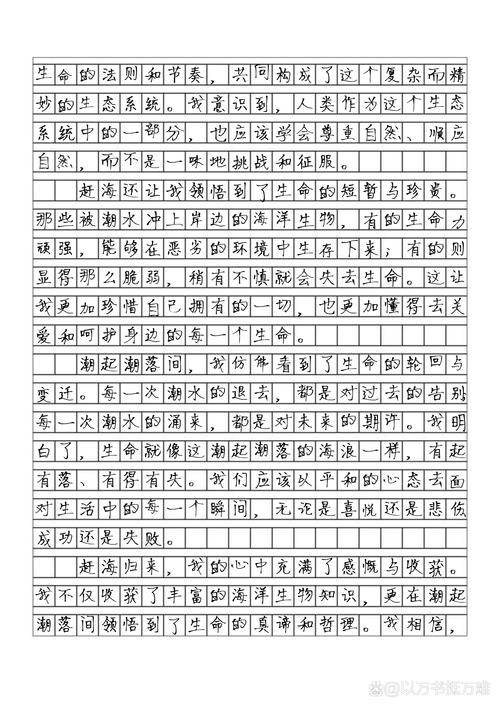 生命的法则和节奏，共同构成了这个复杂而精
妙的生态系统。我意识到，人类作为这个生态
系统中的一部分，也应该学会尊重自然、顺应
自然，而不是一味地挑战和征服。
赶海还让我领悟到了生命的短暂与珍贵。
那些被潮水冲上岸边的海洋生物，有的生命力
顽强，能够在恶劣的环境中生存下来；有的则
显得那么脆弱，稍有不慎就会失去生命。这让
我更加珍惜自己拥有的一切，也更加懂得去关
爱和呵护身边的每一个生命。
潮起潮落间，我仿佛看到了生命的轮回与
变迁。每一次潮水的退去，都是对过去的告别
每一次潮水的涌来，都是对未来的期许。我明
白了，生命就像这潮起潮落的海浪一样，有起
有落、有得有失。我们应该以平和的心态去面
对生活中的每一个瞬间，无论是喜悦还是悲伤
成功还是失败。
赶海归来，我的心中充满了感慨与收获。
我不仅收获了丰富的海洋生物知识，更在潮起
潮落间领悟到了生命的真谛和哲理。我相信，
以万书抵万难